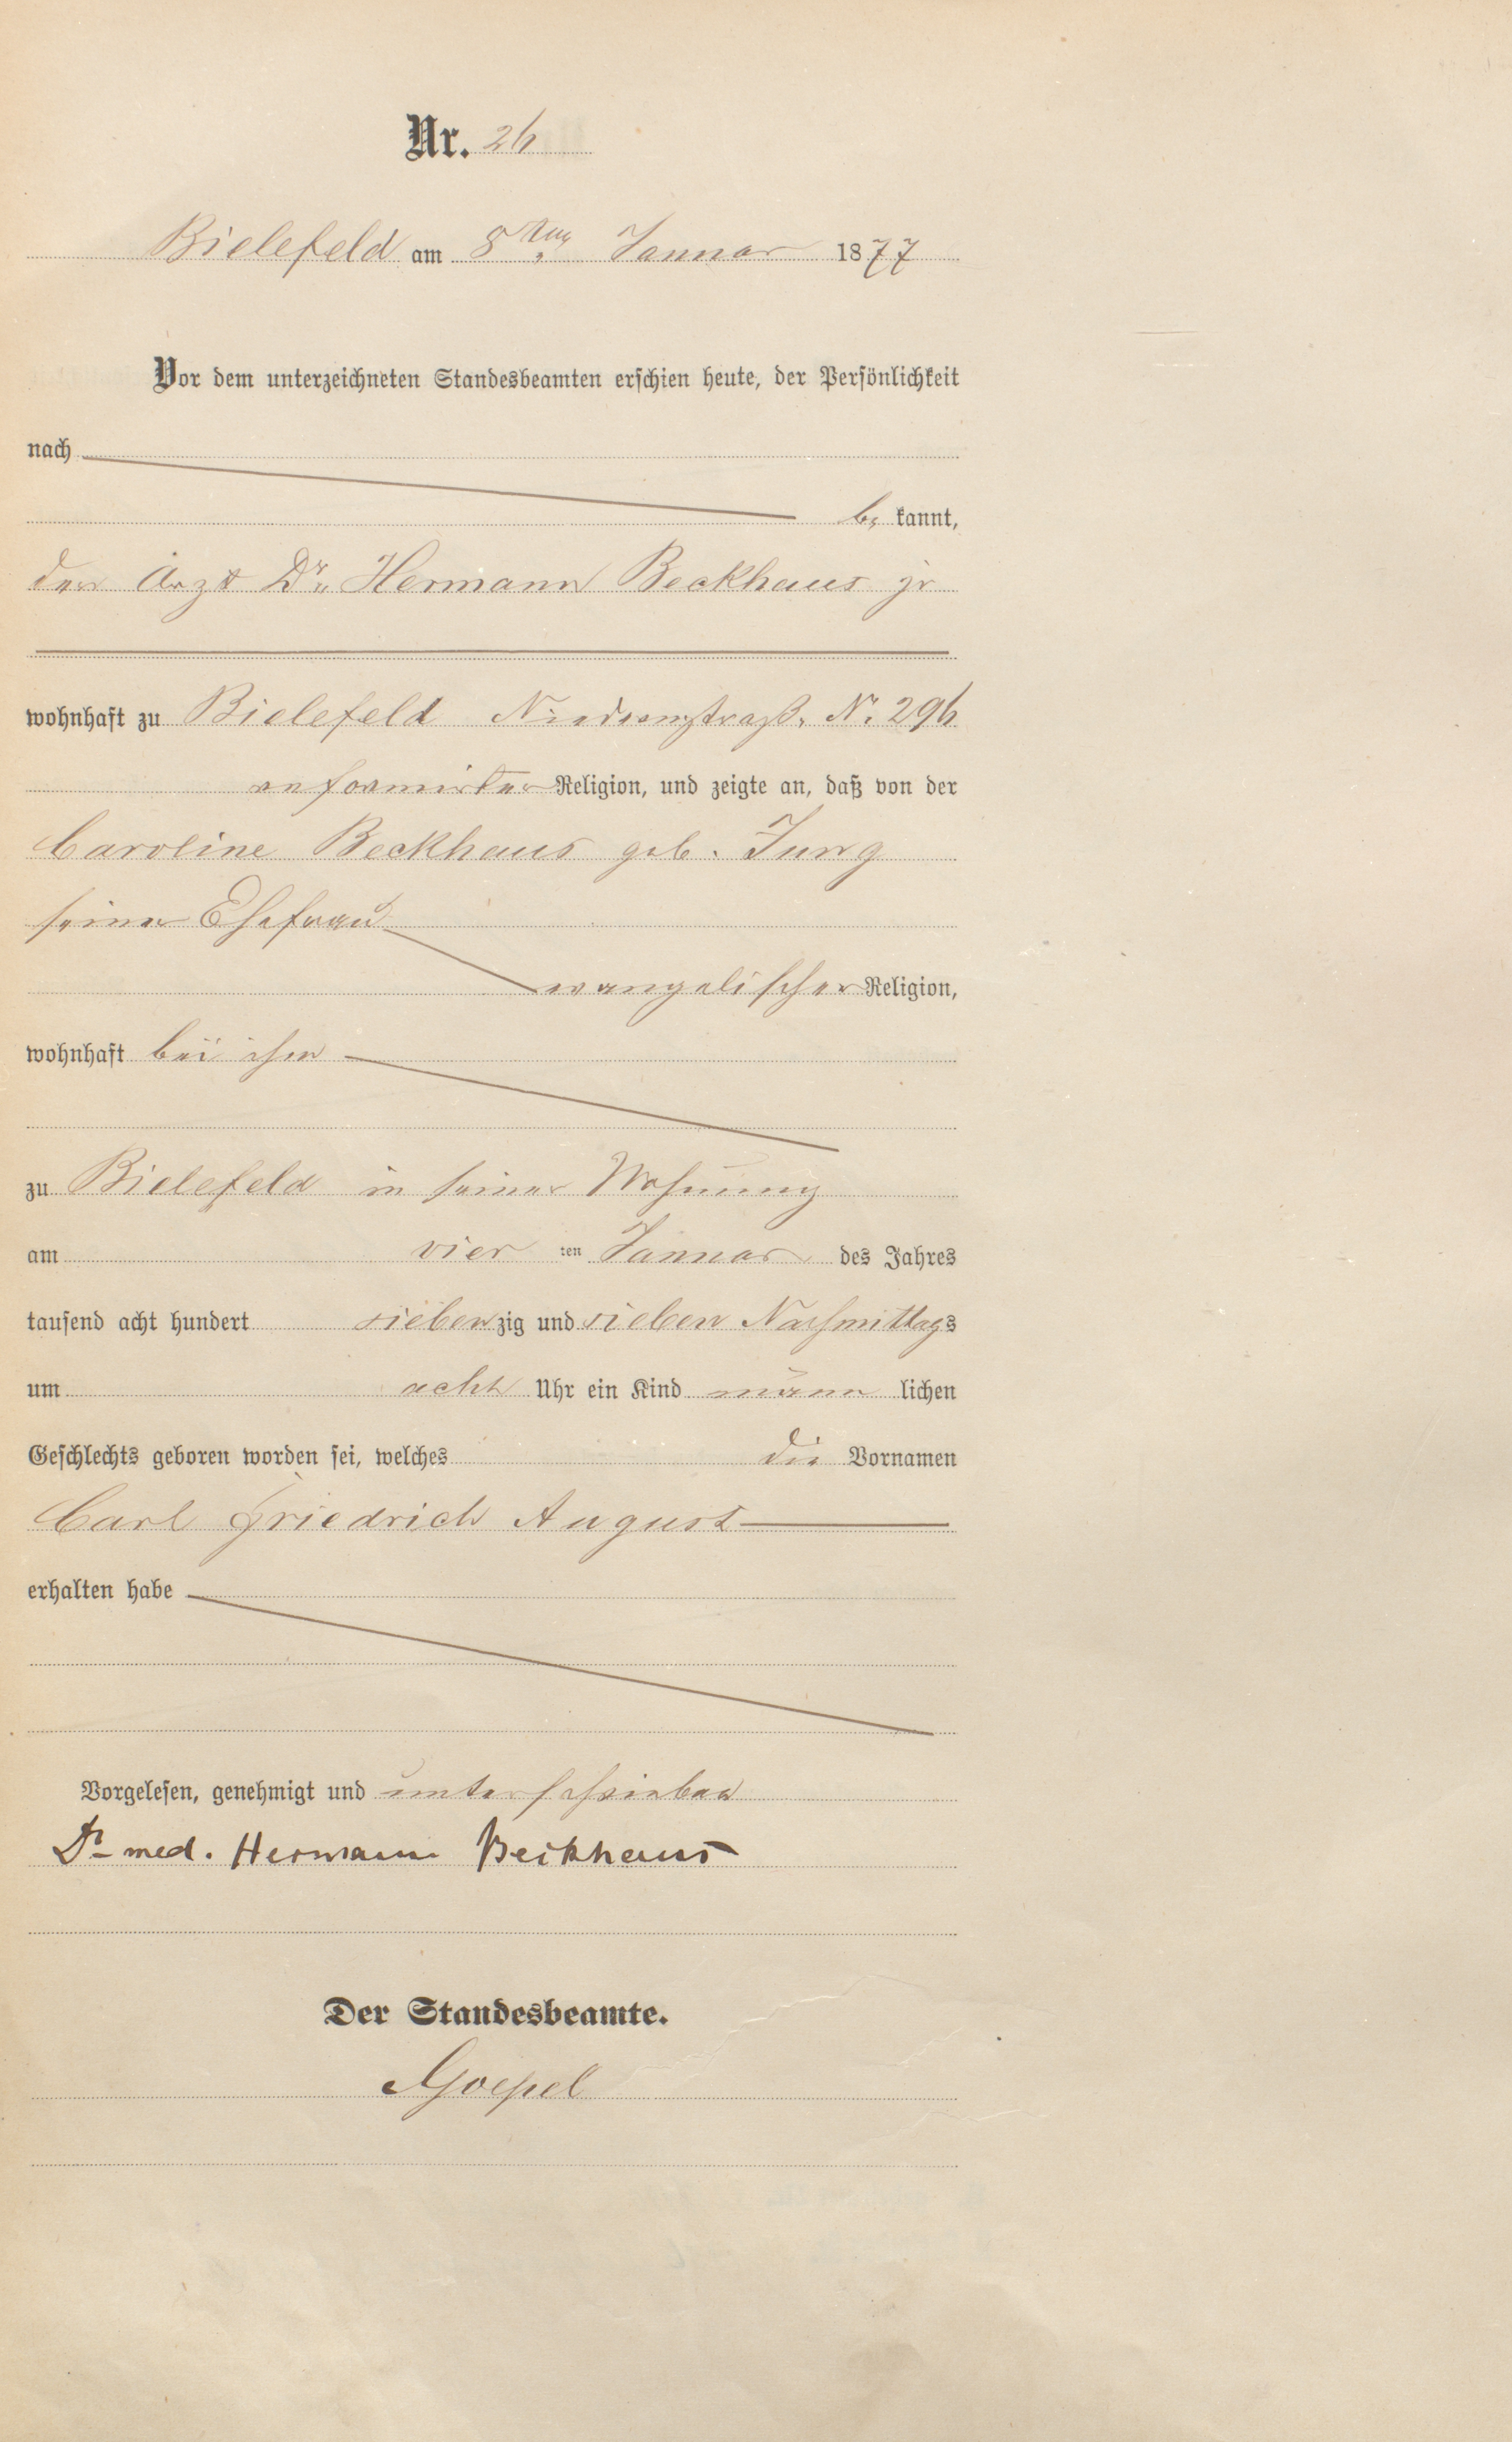 Nr. 26
Bielefeld am 8ten Januar 1877
Vor dem unterzeichneten Standesbeamten erschien heute, der Persönlichkeit
nach
be kannt,
der Arzt Dr. Hermann Beckhaus jr
wohnhaft zu Bielefeld Niedernstraß. N. 296
reformirter Religion, und zeigte an, daß von der
Caroline Beckhaus geb. Jung
seiner Ehefrau
evangelischer Religion,
wohnhaft bei ihm
zu Bielefeld in seiner Wohnung
am vier ten Januar des Jahres
tausend acht hundert siebenzig und sieben Nachmittags
um acht Uhr ein Kind männ lichen
Geschlechts geboren worden sei, welches die Vornamen
Carl Friedrich August
erhalten habe
Vorgelesen, genehmigt und unterschrieben
Dr med. Hermann Beckhaus
Der Standesbeamte.
Goepel